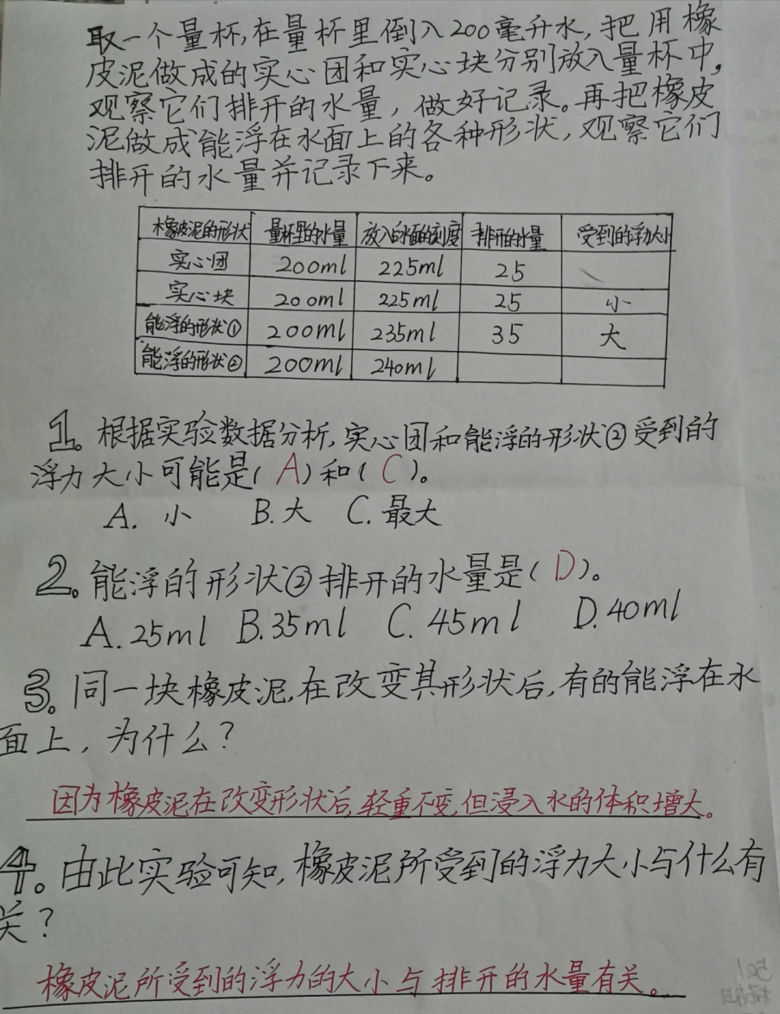 取一个量杯,在量杯里倒入200毫升水,把用橡
皮泥做成的实心团和实心块分别放入量杯中,
观察它们排开的水量,做好记录。再把橡皮
泥做成能浮在水面上的各种形状,观察它们
排开的水量并记录下来。
橡皮泥的形状 量杯里的水量 放入的水面的刻度 排开的水量 受到的浮力大小
实心团 200ml 225ml 25
实心块 200ml 225ml 25 小
能浮的形状① 200ml 235ml 35 大
能浮的形状② 200ml 240ml
1。根据实验数据分析,实心团和能浮的形状②受到的
浮力大小可能是(A)和(C)。
A. 小 B.大 C.最大
2。能浮的形状②排开的水量是(D)。
A.25ml B.35ml C.45ml D.40ml
3。同一块橡皮泥,在改变其形状后,有的能浮在水
面上,为什么?
因为橡皮泥在改变形状后,轻重不变,但浸入水的体积增大。
4。由此实验可知,橡皮泥所受到的浮力大小与什么有
关?
橡皮泥所受到的浮力的大小与排开的水量有关。